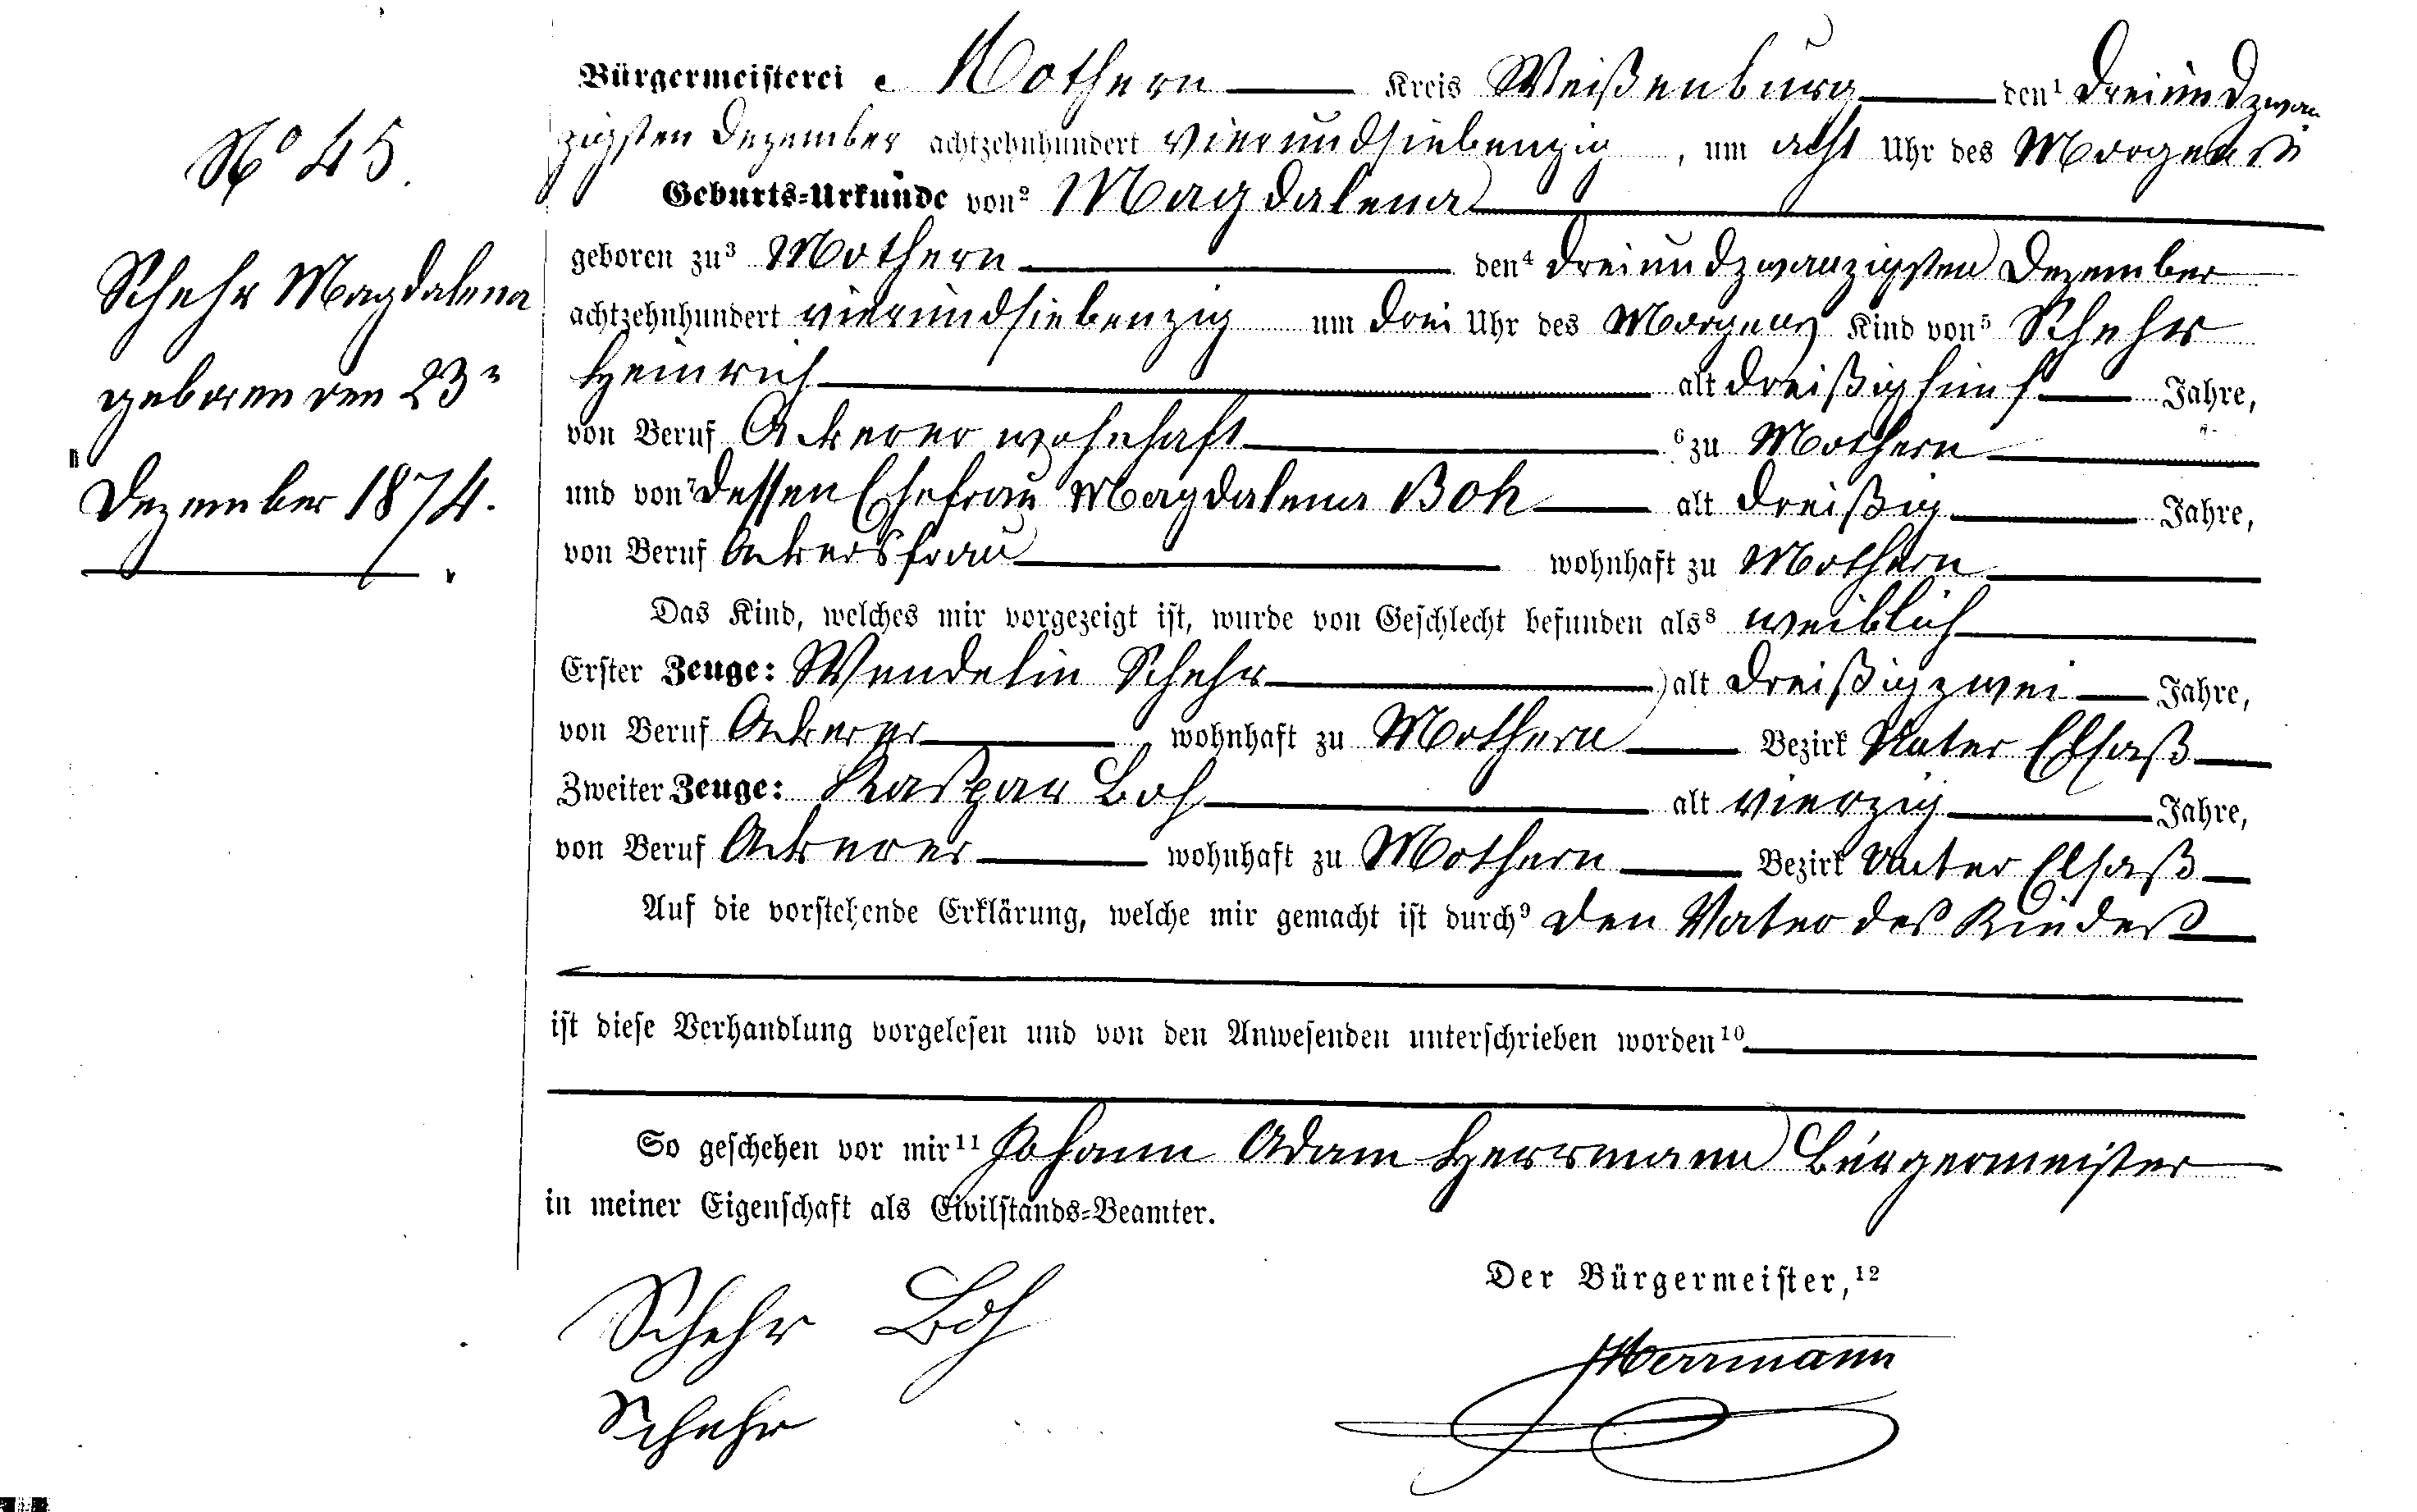 Nº 45.
Schehr Magdalena
geboren den 23ⁿ
Dezember 1874.
Bürgermeisterei Mothern Kreis Weißenburg den¹ dreiundzwan
zigsten Dezember achtzehnhundert vierundsiebenzig, um acht Uhr des Morgens
Geburts-Urkunde von² Magdalena
geboren zu³ Mothern den⁴ dreiundzwanzigsten Dezember
achtzehnhundert vierundsiebenzig um drei Uhr des Morgens Kind von⁵ Schehr
Heinrich alt dreißigfünf Jahre,
von Beruf Ackerer wohnhaft ⁶zu Mothern
und von⁷ dessen Ehefrau Magdalena Boh alt dreißig Jahre,
von Beruf Ackersfrau wohnhaft zu Mothern
Das Kind, welches mir vorgezeigt ist, wurde von Geschlecht befunden als⁸ weiblich
Erster Zeuge: Wendelin Schehr alt dreißigzwei Jahre,
von Beruf Ackerer wohnhaft zu Mothern Bezirk Unter Elsaß
Zweiter Zeuge: Kaspar Boh alt vierzig Jahre,
von Beruf Ackerer wohnhaft zu Mothern Bezirk Unter Elsaß
Auf die vorstehende Erklärung, welche mir gemacht ist durch⁹ den Vater des Kindes
ist diese Verhandlung vorgelesen und von den Anwesenden unterschrieben worden¹⁰
So geschehen vor mir¹¹ Johann Adam Herrmann Bürgermeister
in meiner Eigenschaft als Civilstands-Beamter.
Der Bürgermeister,¹²
Schehr Boh
Herrmann
Schehr